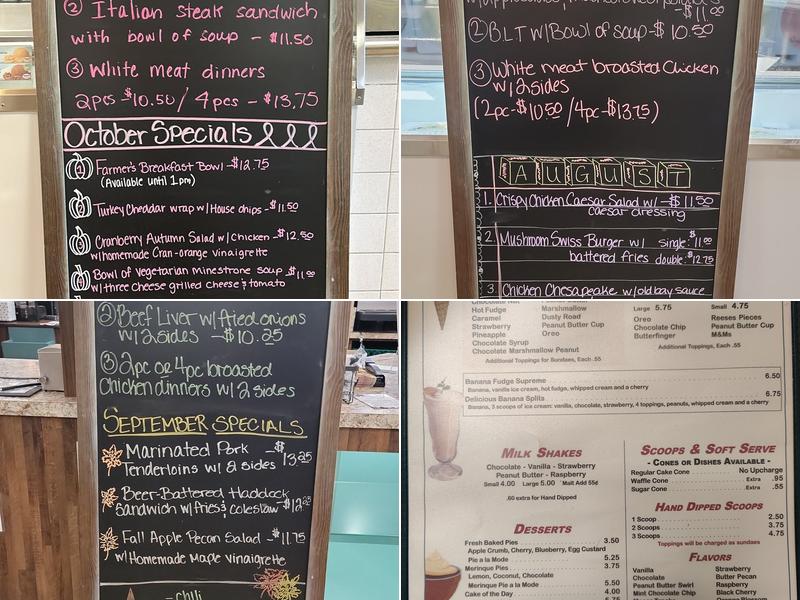 ② Italian steak sandwich
with bowl of soup - $11.50
③ White meat dinners
2pcs - $10.50 / 4 pcs - $13.75
October Specials
1 Farmer's Breakfast Bowl - $12.75
(Available until 1pm)
2 Turkey Cheddar wrap w/ House chips - $11.50
3 Cranberry Autumn Salad w/ Chicken - $12.50
w/homemade Cran-orange vinaigrette
Bowl of Vegetarian minestrone soup - $11.00
w/three cheese grilled cheese & tomato
- $11.00
② BLT w/Bowl of soup - $10.50
③ White meat broasted Chicken
w/ 2 sides
(2pc - $10.50 / 4pc - $13.75)
AUGUST
1. Crispy Chicken Caesar Salad w/ - $11.50
caesar dressing
2. Mushroom Swiss Burger w/ single: $11.00
battered fries double: $12.75
3. Chicken Chesapeake w/old bay sauce
② Beef Liver w/ fried onions
w/ 2 sides - $10.25
③ 2pc or 4pc broasted
Chicken dinners w/ 2 sides
SEPTEMBER SPECIALS
Marinated Pork - $13.25
Tenderloins w/ 2 sides
Beer-Battered Haddock
Sandwich w/ fries & coleslaw - $12.25
Fall Apple Pecan Salad - $11.75
w/ Homemade Maple vinaigrette
- Chili
Hot Fudge
Caramel
Strawberry
Pineapple
Chocolate Syrup
Marshmallow
Dusty Road
Peanut Butter Cup
Oreo
Chocolate Marshmallow Peanut
Additional Toppings for Sundaes, Each .55
Large 5.75 Small 4.75
Oreo
Chocolate Chip
Butterfinger
Reeses Pieces
Peanut Butter Cup
M&Ms
Additional Toppings, Each .55
Banana Fudge Supreme 6.50
Banana, vanilla ice cream, hot fudge, whipped cream and a cherry
Delicious Banana Splits 6.75
Banana, 3 scoops of ice cream: vanilla, chocolate, strawberry, 4 toppings, peanuts, whipped cream and a cherry
MILK SHAKES
Chocolate - Vanilla - Strawberry
Peanut Butter - Raspberry
Small 4.00 Large 5.00 Malt Add 55¢
.60 extra for Hand Dipped
DESSERTS
Fresh Baked Pies 3.50
Apple Crumb, Cherry, Blueberry, Egg Custard
Pie a la Mode 5.25
Meringue Pies 3.75
Lemon, Coconut, Chocolate
Meringue Pie a la Mode 5.50
Cake of the Day 4.00
SCOOPS & SOFT SERVE
- CONES OR DISHES AVAILABLE -
Regular Cake Cone No Upcharge
Waffle Cone Extra .95
Sugar Cone Extra .55
HAND DIPPED SCOOPS
1 Scoop 2.50
2 Scoops 3.75
3 Scoops 4.75
Toppings will be charged as sundaes
FLAVORS
Vanilla
Chocolate
Peanut Butter Swirl
Mint Chocolate Chip
Strawberry
Butter Pecan
Raspberry
Black Cherry